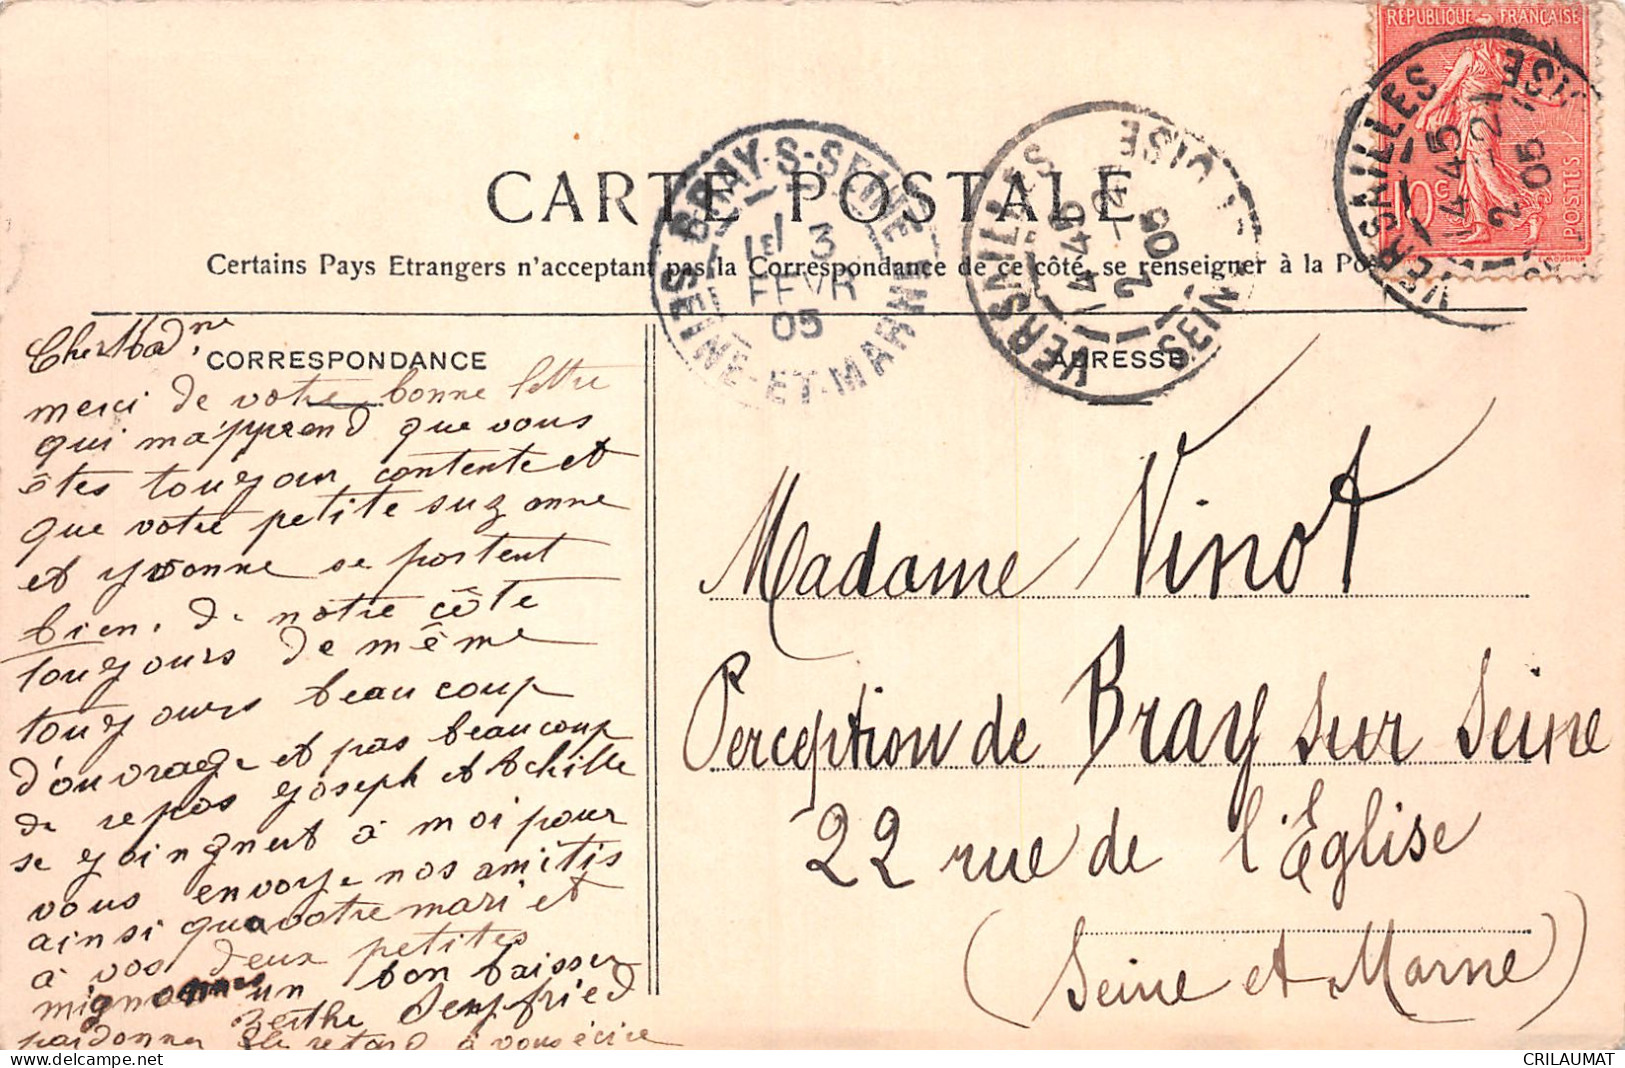 RÉPUBLIQUE FRANÇAISE
10c
POSTES
VERSAILLES
14 45
2 - 2
05
SEINE ET OISE
VERSAILLES
14 45
2 - 2
05
SEINE
OISE
BRAY-S-SEINE
3
FEVR
05
SEINE-ET-MARNE
CARTE POSTALE
Certains Pays Etrangers n'acceptant pas la Correspondance de ce côté, se renseigner à la Po
CORRESPONDANCE
Cher Mad.ne
merci de votre bonne lettre
qui m'apprend que vous
êtes toujour contente et
que votre petite suzanne
et yvonne se portent
bien. de notre côte
toujours de même
toujours beaucoup
d'ouvrage et pas beaucoup
de repos joseph et Achille
se joingnent à moi pour
vous envoye nos amitis
ainsi qua votre mari et
à vos deux petites
mignonnes un bon baisser
Berthe Seyfried
pardonner le retard à vous écire
ADRESSE
Madame Vinot
Perception de Bray sur Seine
22 rue de l'Église
(Seine et Marne)
CRILAUMAT